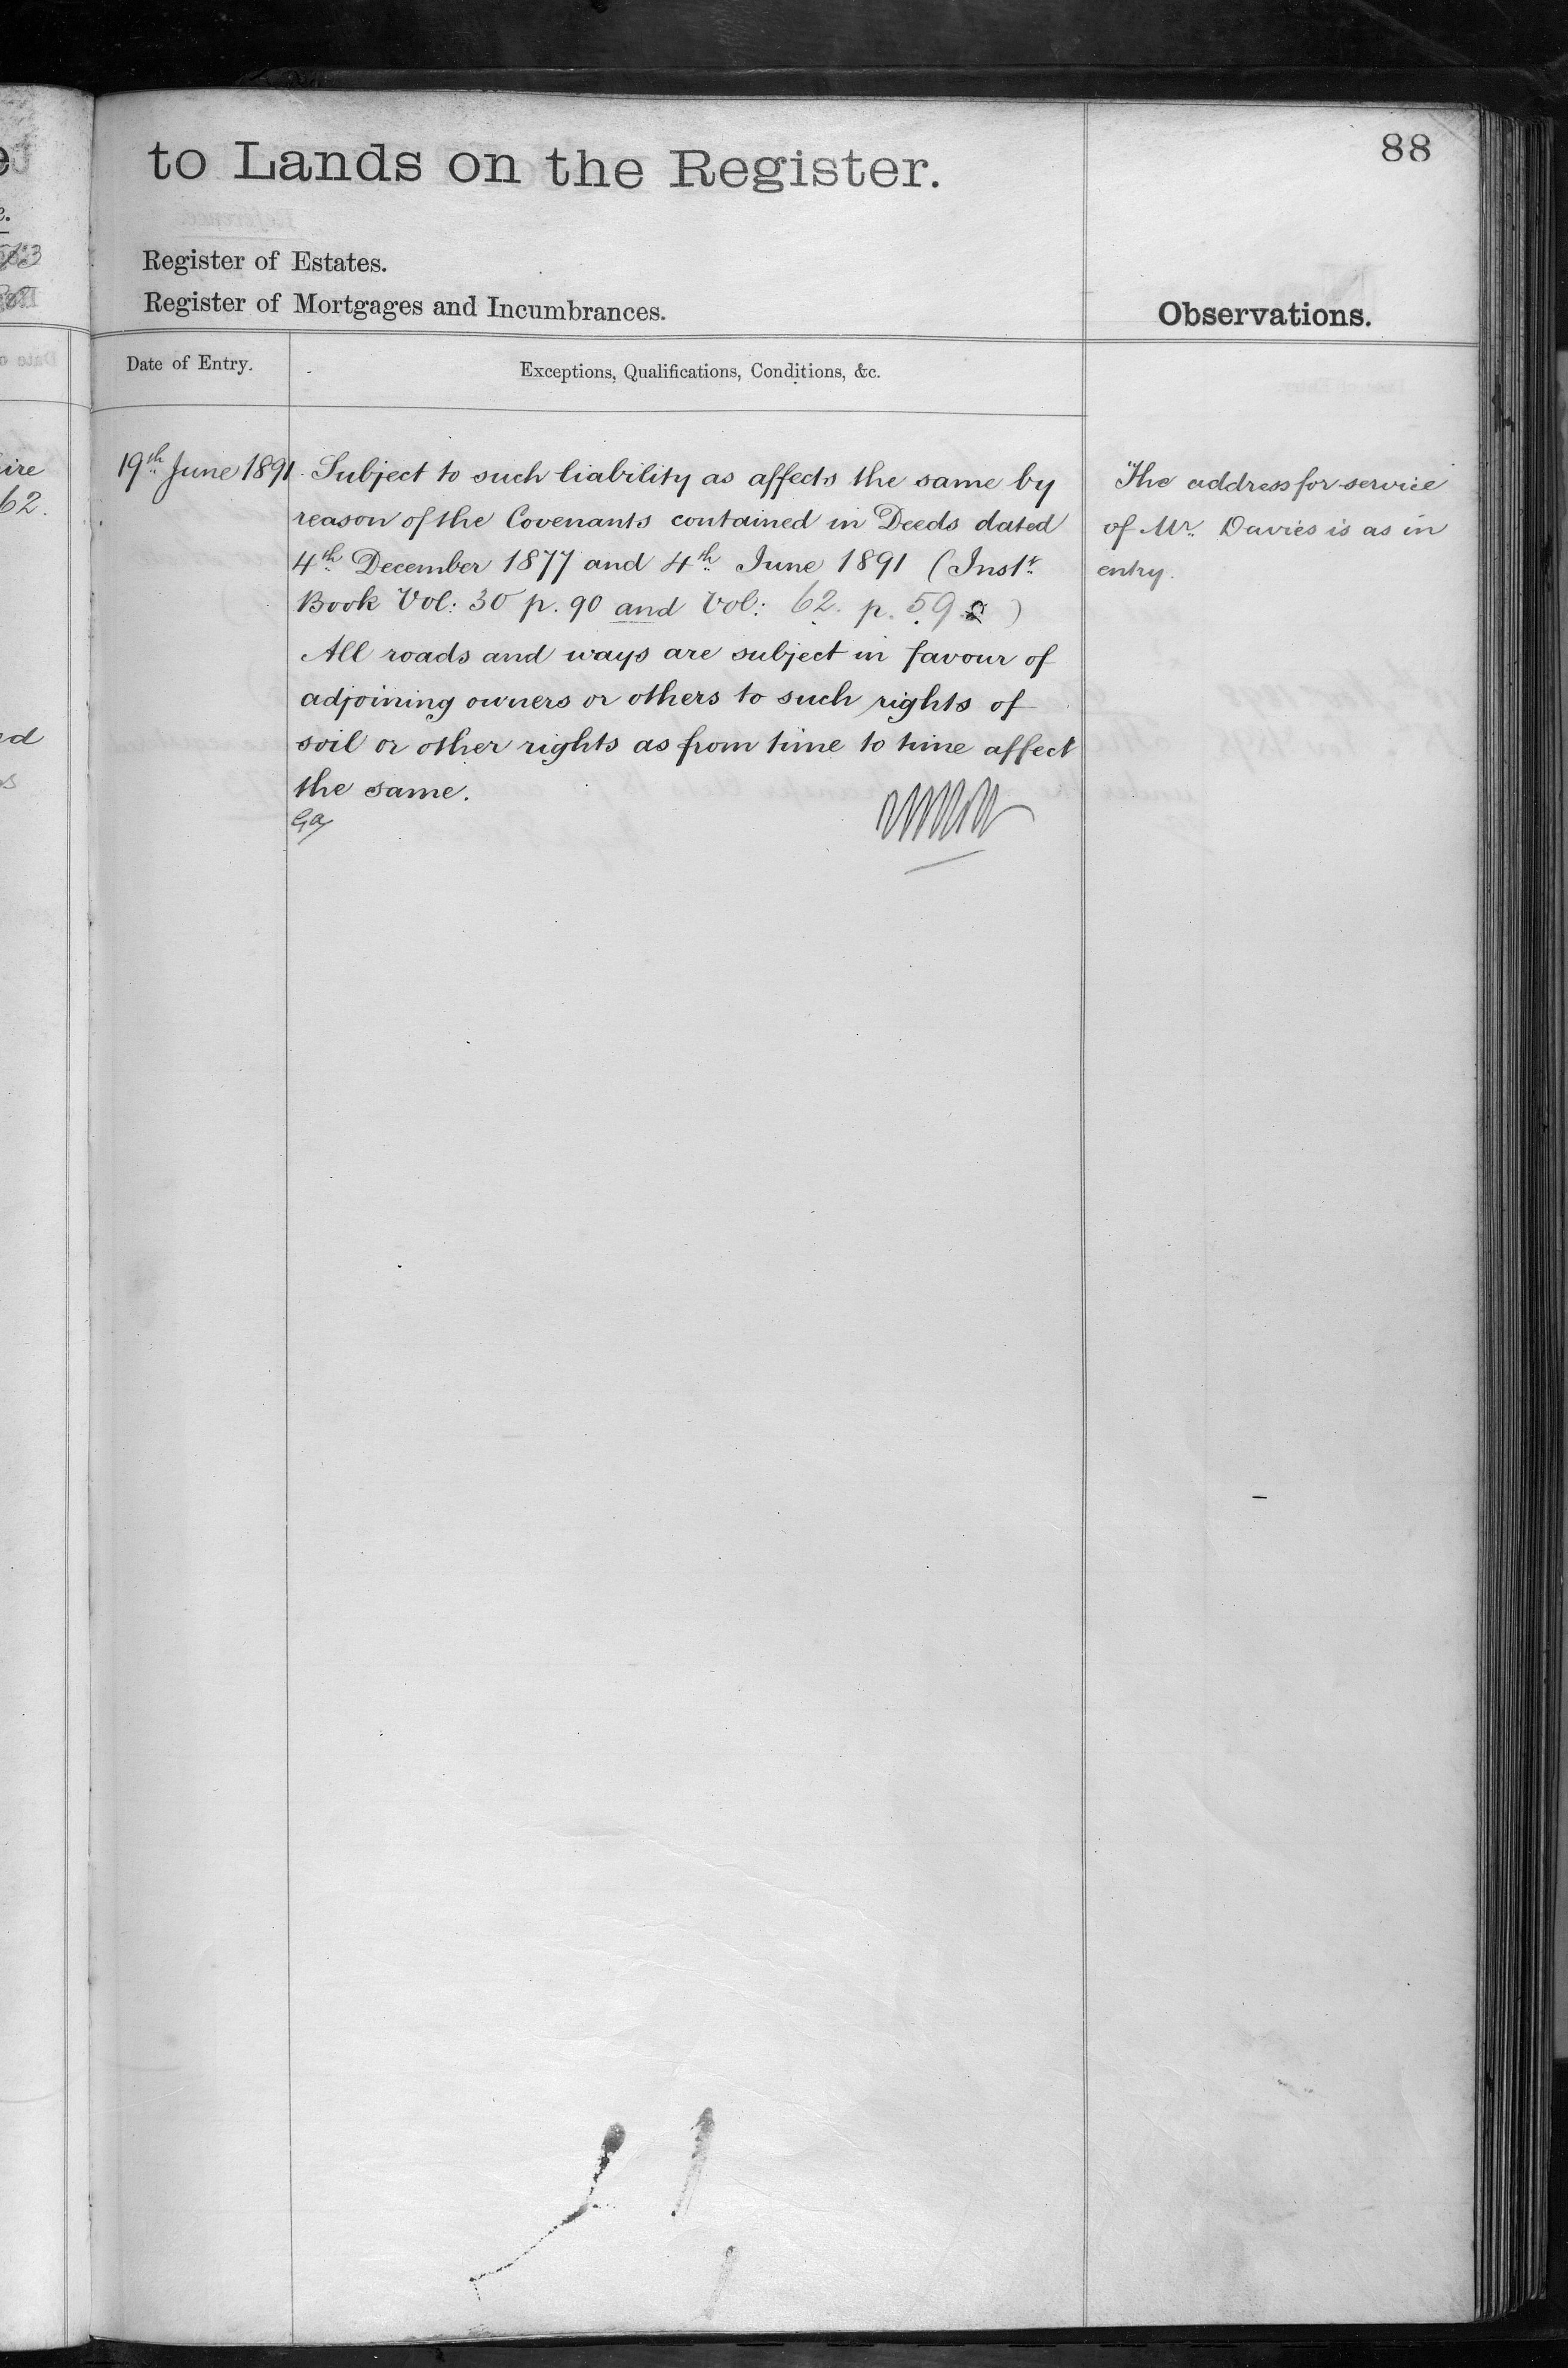 to Lands on the Register.
88
Register of Estates.
Register of Mortgages and Incumbrances.
Observations.
Date of Entry.
Exceptions, Qualifications, Conditions, &c.
19th June 1891
Subject to such liability as affects the same by
reason of the Covenants contained in Deeds dated
4th December 1877 and 4th June 1891 (Instr
Book Vol: 30 p. 90 and Vol: 62. p. 59 )
All roads and ways are subject in favour of
adjoining owners or others to such rights of
soil or other rights as from time to time affect
the same.
The address for service
of Mr. Davies is as in
entry.
ire
62.